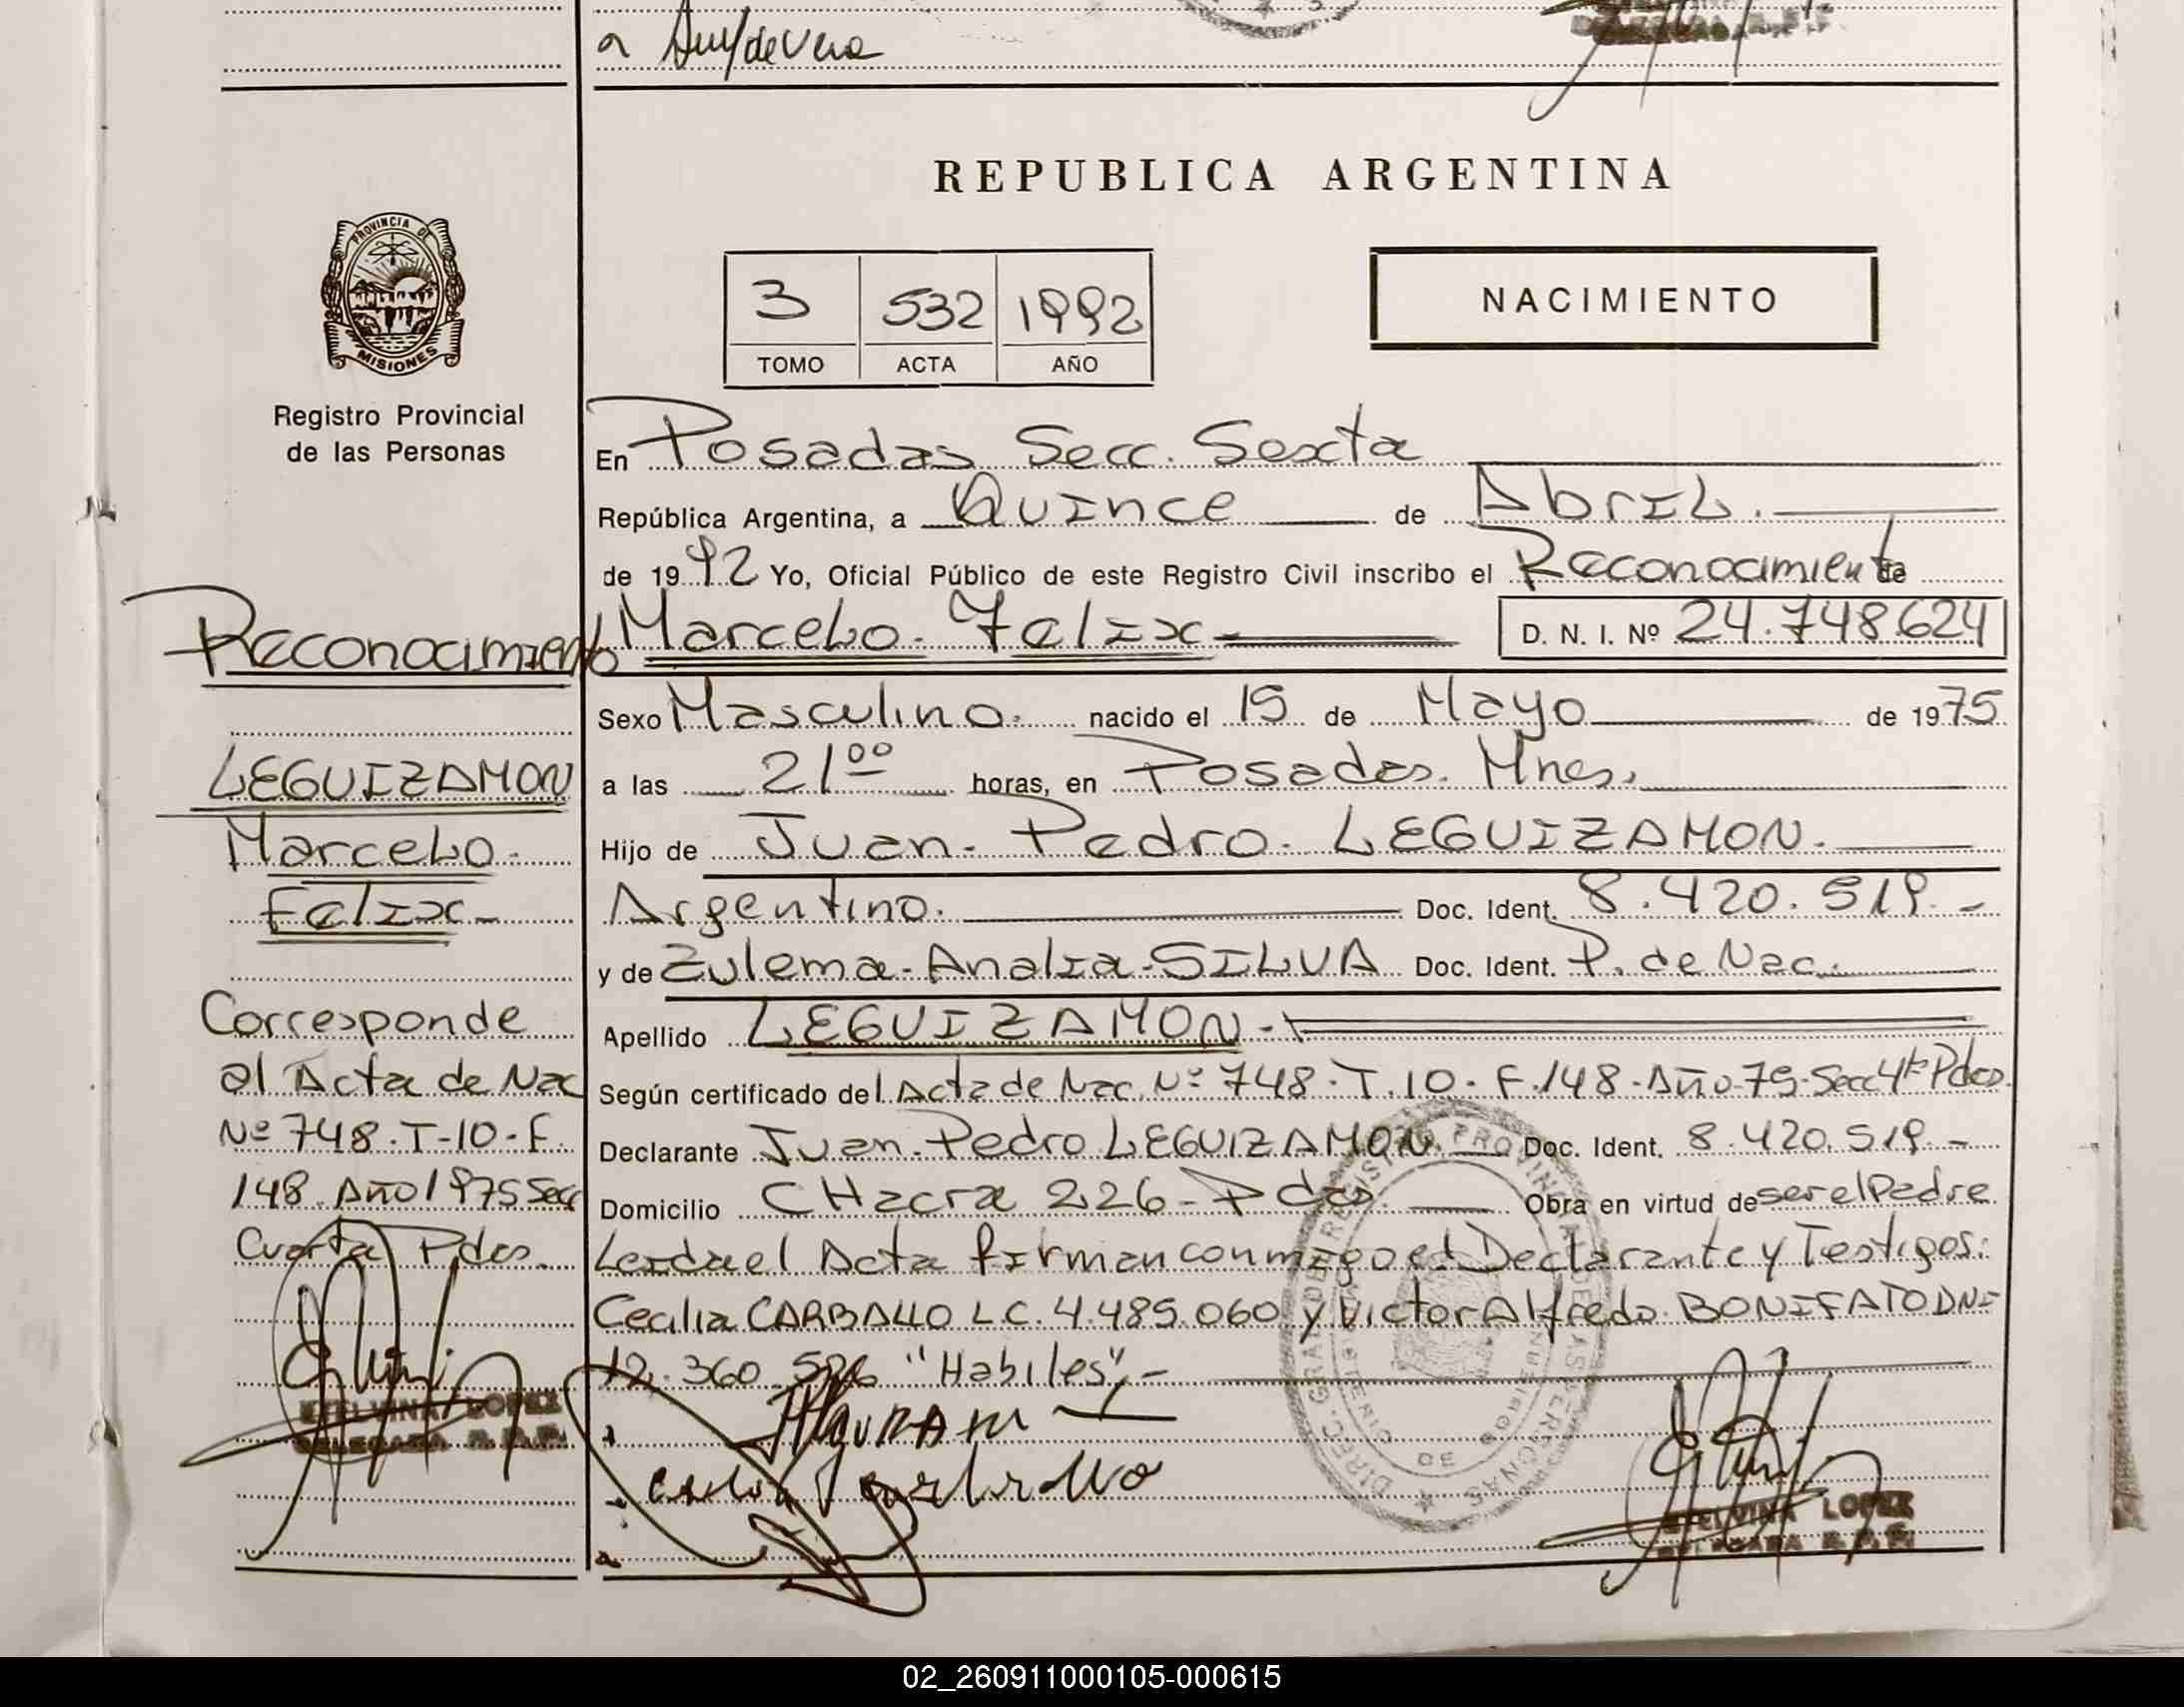 REPUBLICA ARGENTINA
PROVINCIA DE
MISIONES
Registro Provincial
de las Personas
3 532 1992
TOMO ACTA AÑO
NACIMIENTO
En Posadas Secc. Sexta
República Argentina, a Quince de Abril.
de 1992 Yo, Oficial Público de este Registro Civil inscribo el Reconocimiento de
Marcelo - Felix - D. N. I. Nº 24.748.624
Sexo Masculino. nacido el 15 de Mayo de 1975
a las 21⁰⁰ horas, en Posadas. Mnes.
Hijo de Juan - Pedro - LEGUIZAMON.
Argentino. Doc. Ident. 8.420.519.-
y de Zulema - Analia - SILVA Doc. Ident. P. de Nac.
Apellido LEGUIZAMON.-
Según certificado del Acta de Nac. Nº 748. T. 10. F. 148. Año 75. Secc 4ta Pdas.
Declarante Juan - Pedro LEGUIZAMON. Doc. Ident. 8.420.519.-
Domicilio CHacra 226 - Pdas. Obra en virtud de ser el Padre
Leida el Acta firman conmigo el Declarante y Testigos:
Cecilia CARBALLO L C. 4.485.060 y Victor Alfredo BONIFATO DNI
12.360.526 "Habiles".-
Reconocimiento
LEGUIZAMON
Marcelo.
Felix -
Corresponde
al Acta de Nac
Nº 748. T-10-F.
148. Año 1975 Secc
Cuarta Pdas.
ETELVINA LOPEZ
DELEGADA R.P.P.
ETELVINA LOPEZ
DELEGADA R.P.P.
02_260911000105-000615